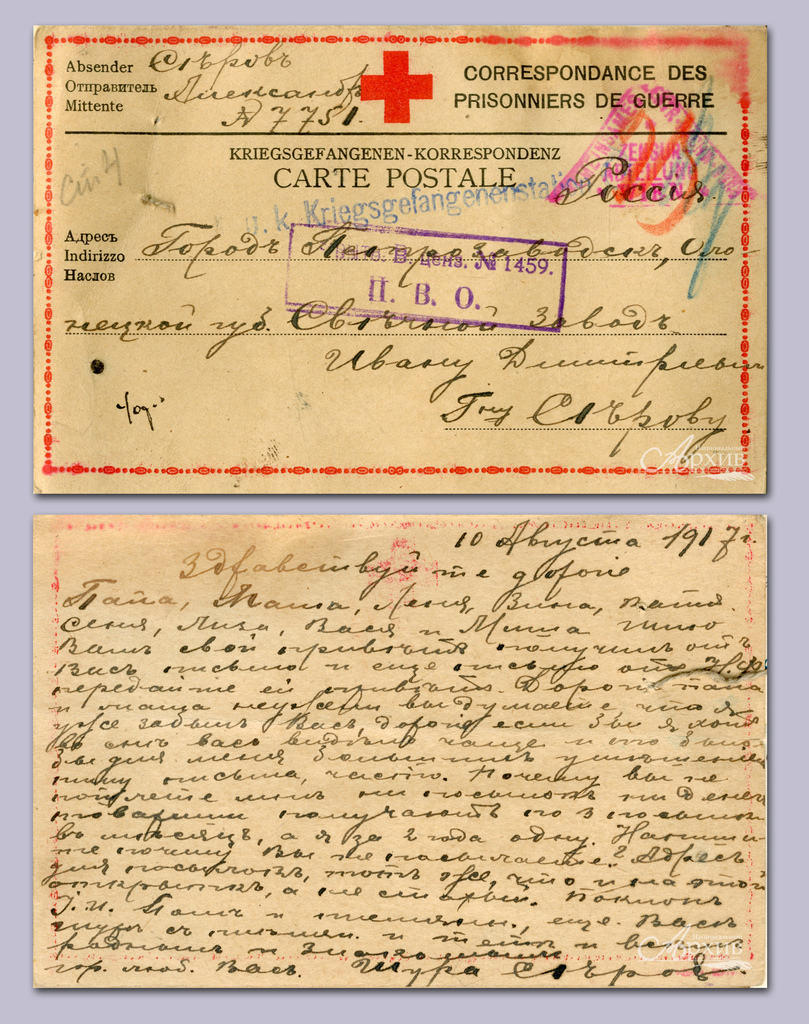 Absender
Отправитель
Mittente
Сѣровъ
Александръ
№ 7751.
CORRESPONDANCE DES
PRISONNIERS DE GUERRE
KRIEGSGEFANGENEN-KORRESPONDENZ
CARTE POSTALE
ZENSUR
ABTEILUNG
Россия.
k. Kriegsgefangenenstation
Адресъ
Indirizzo
Наслов
Городъ Петрозаводскъ, Оло-
В. ценз. № 1459.
П. В. О.
нецкой губ. Свѣчной Заводъ
Ивану Дмитриевич
Гну Сѣрову
Архив
10 Августа 1917 г.
Здравствуйте дорогие
Папа, Мама, Леня, Зина, Катя.
Сеня, Лиза, Вася и Митя шлю
Вамъ свой привѣтъ получилъ отъ
Васъ письмо и еще письмо отъ
передайте ей привѣтъ. Дорогие папа
и мама неужели вы думаете, что я
уже забылъ Васъ, дорогие если бы я хотя
во снѣ васъ видѣлъ чаще и то было
бы для меня большимъ утешением
пишу письма, часто. Почему вы не
пошлете мнѣ ни посылокъ ни денег
товарищи получаютъ по 3 посылки
въ мѣсяцъ, а я за 2 года одну. Напиши-
те почему Вы не посылаете? Адресъ
для посылокъ, тотъ же, что и на этой
открыткѣ, а не старый. Поклонъ
и еще Васъ
и
роднымъ и знакомымъ
гор. люб. Васъ. Шура Сѣров
Архив